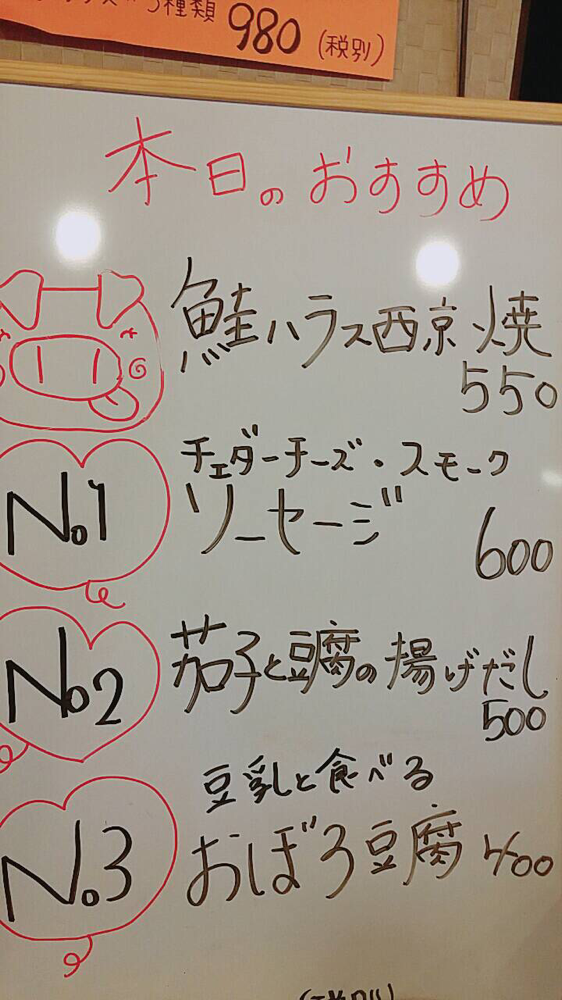 3種類 980 (税別)
本日のおすすめ
鮭ハラス西京焼
550
No.1
チェダーチーズ・スモーク
ソーセージ
600
No.2
茄子と豆腐の揚げだし
500
No.3
豆乳と食べる
おぼろ豆腐